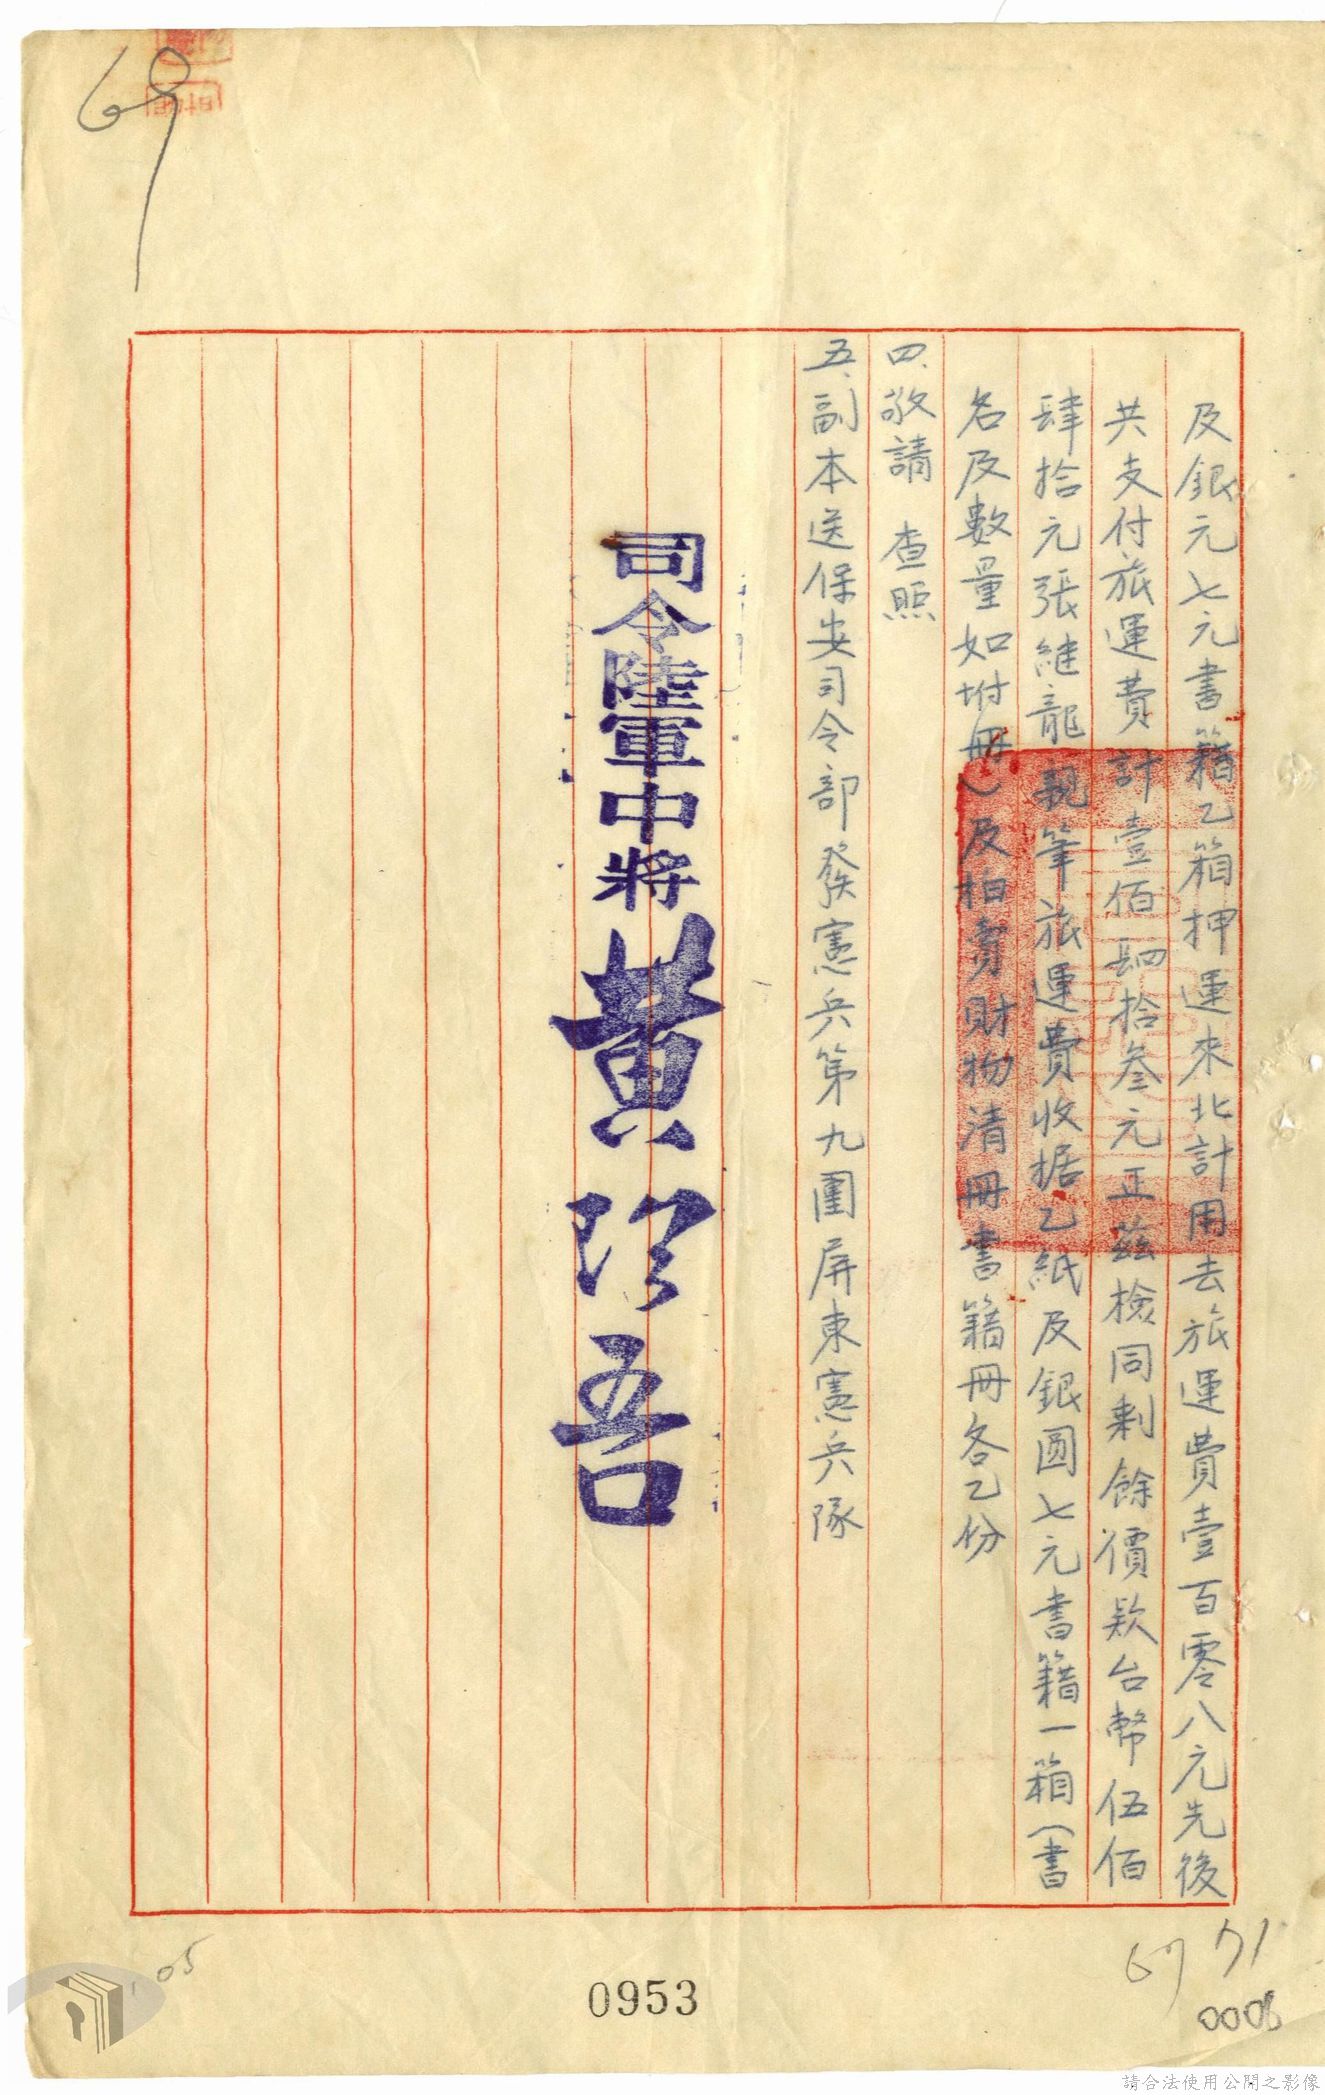 及銀元七元書籍乙箱押運來北計用去旅運費壹百零八元先後
共支付旅運費計壹佰肆拾叁元正茲檢同剩餘價款台幣伍佰
肆拾元張繼龍親筆旅運費收据乙紙及銀圓七元書籍一箱(書
名及數量如坿冊)及拍賣財物清冊書籍冊各乙份
四、敬請　查照
五、副本送保安司令部發憲兵第九團屏東憲兵隊
司令陸軍中將黃珍吾
69
05
0953
67 71
0008
請合法使用公開之影像